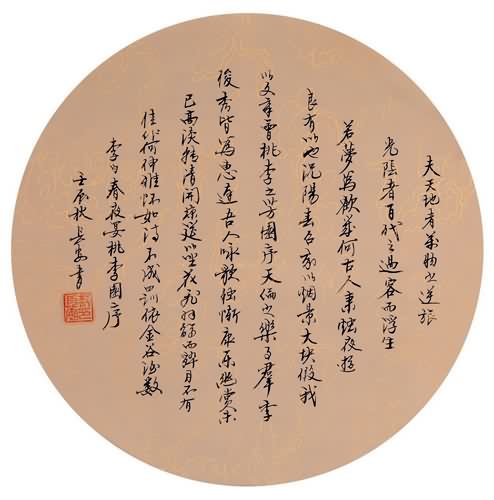 夫天地者萬物之逆旅
光陰者百代之過客而浮生
若夢為歡幾何古人秉燭夜遊
良有以也況陽春召我以煙景大塊假我
以文章會桃李之芳園序天倫之樂事羣季
俊秀皆為惠連吾人詠歌獨慚康樂幽賞未
已高談轉清開瓊筵以坐花飛羽觴而醉月不有
佳作何伸雅懷如詩不成罰依金谷酒數
李白春夜宴桃李園序
壬辰秋長安書